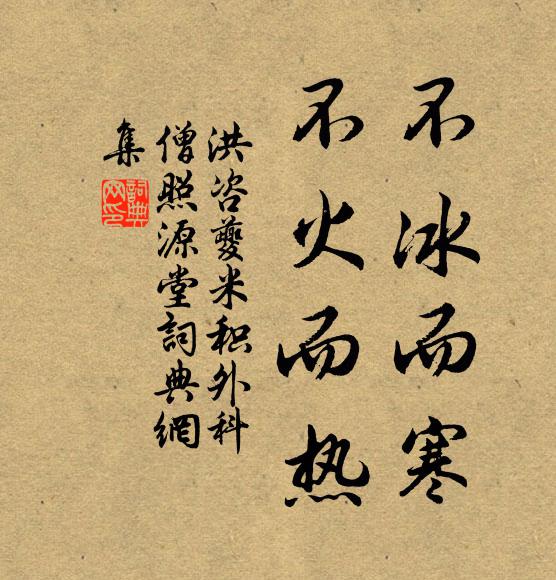 不冰而寒
不火而热
洪咨夔米积外科
僧照源堂詞典網
集
詞典
网印